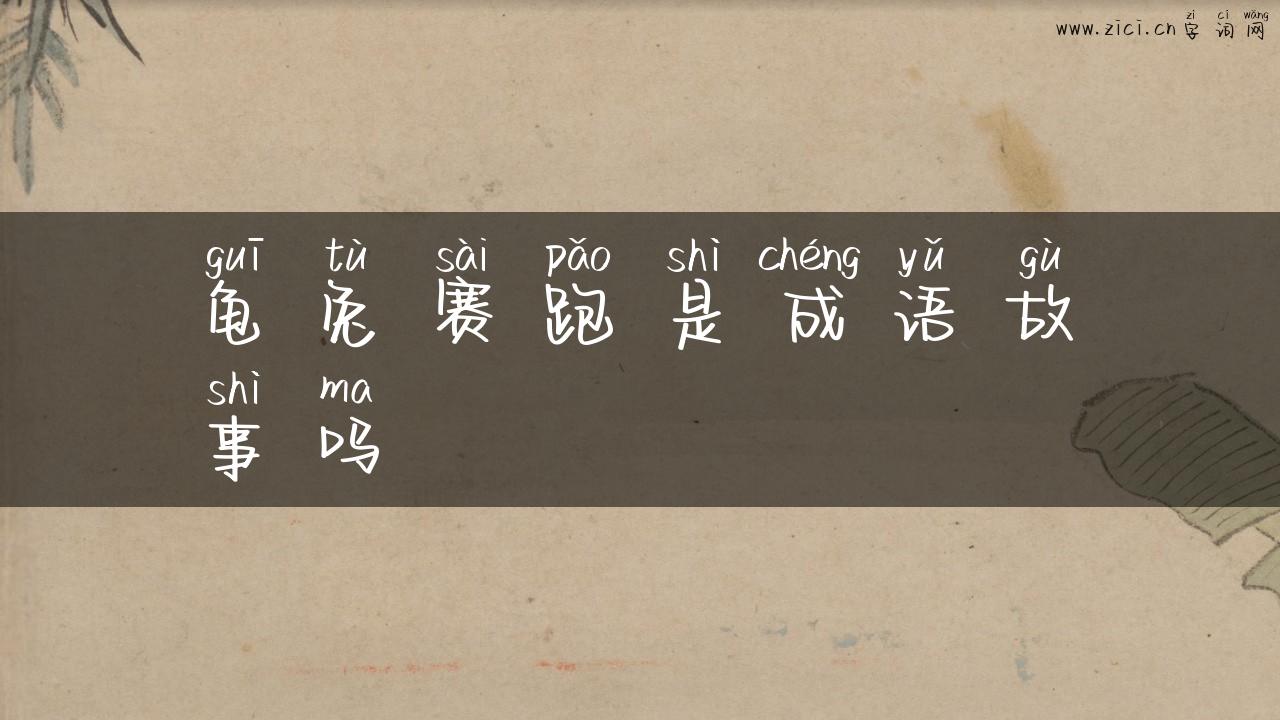 zì cí wǎng
www.zici.cn 字词网
guī tù sài pǎo shì chéng yǔ gù
龟兔赛跑是成语故
shì ma
事吗